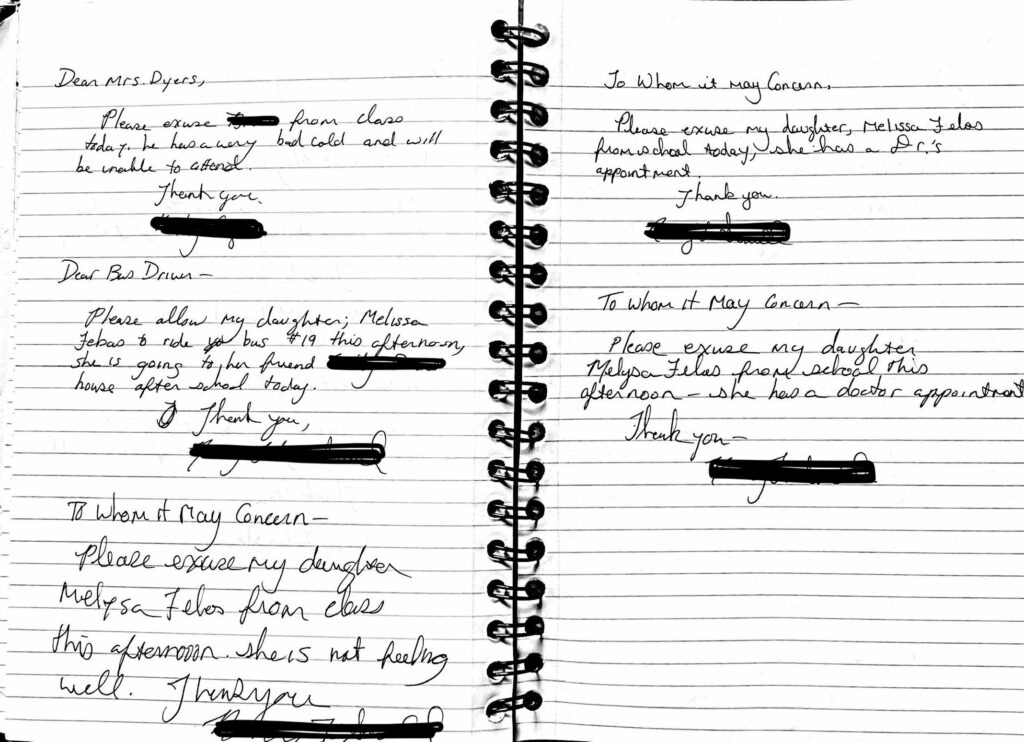 Dear Mrs. Dyers,
Please excuse from class
today. he has a very bad cold and will
be unable to attend.
Thank you.
Dear Bus Driver–
Please allow my daughter; Melissa
Febos to ride bus #19 this afternoon,
she is going to her friend
house after school today.
Thank you,
To Whom it May Concern–
Please excuse my daughter
Melyssa Febos from class
this afternoon. she is not feeling
well. Thank you
To Whom it May Concern,
Please excuse my daughter, Melissa Febos
from school today, she has a Dr.'s
appointment.
Thank you.
To Whom it May Concern–
Please excuse my daughter
Melyssa Febos from school this
afternoon – she has a doctor appointment
Thank you–